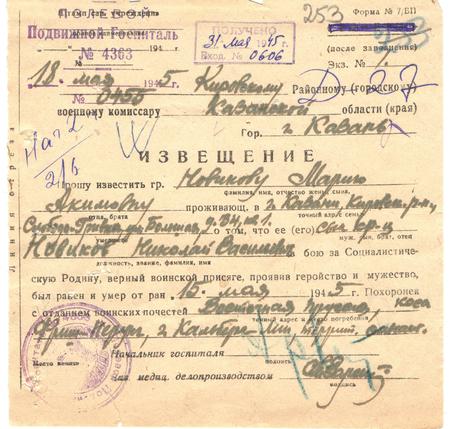 253 Форма № 7/БП
Подвижной Госпиталь
ПОЛУЧЕНО
№ 4363 194 г.
31 мая 1945 г.
(после заполнения)
Вход. № 0606
Экз. №
18. мая 1945 г. Кировскому Районному (городскому)
№ 0455
военному комиссару Казанской области (края)
Гор. г. Казань
Линия отреза
ИЗВЕЩЕНИЕ
Прошу известить гр. Новикову Марию
фамилия, имя, отчество жены, сына,
Якимовну проживающ. в г. Казани, Кировск. р-н,
отца, брата точный адрес семьи
Слобода д. 34, кв. 1. о том, что ее (его) сын
умершего муж, сын, брат, отец
Новиков Николай Васильев. бою за Социалистиче-
должность, звание, фамилия, имя
скую Родину, верный воинской присяге, проявив геройство и мужество,
был ранен и умер от ран 15. мая 1945 г. Похоронен
с отданием воинских почестей Восточная коса
точный адрес и место погребения
Фриш-Нерунг,
Начальник госпиталя
Место печати подпись
Зав. медиц. делопроизводством
подпись